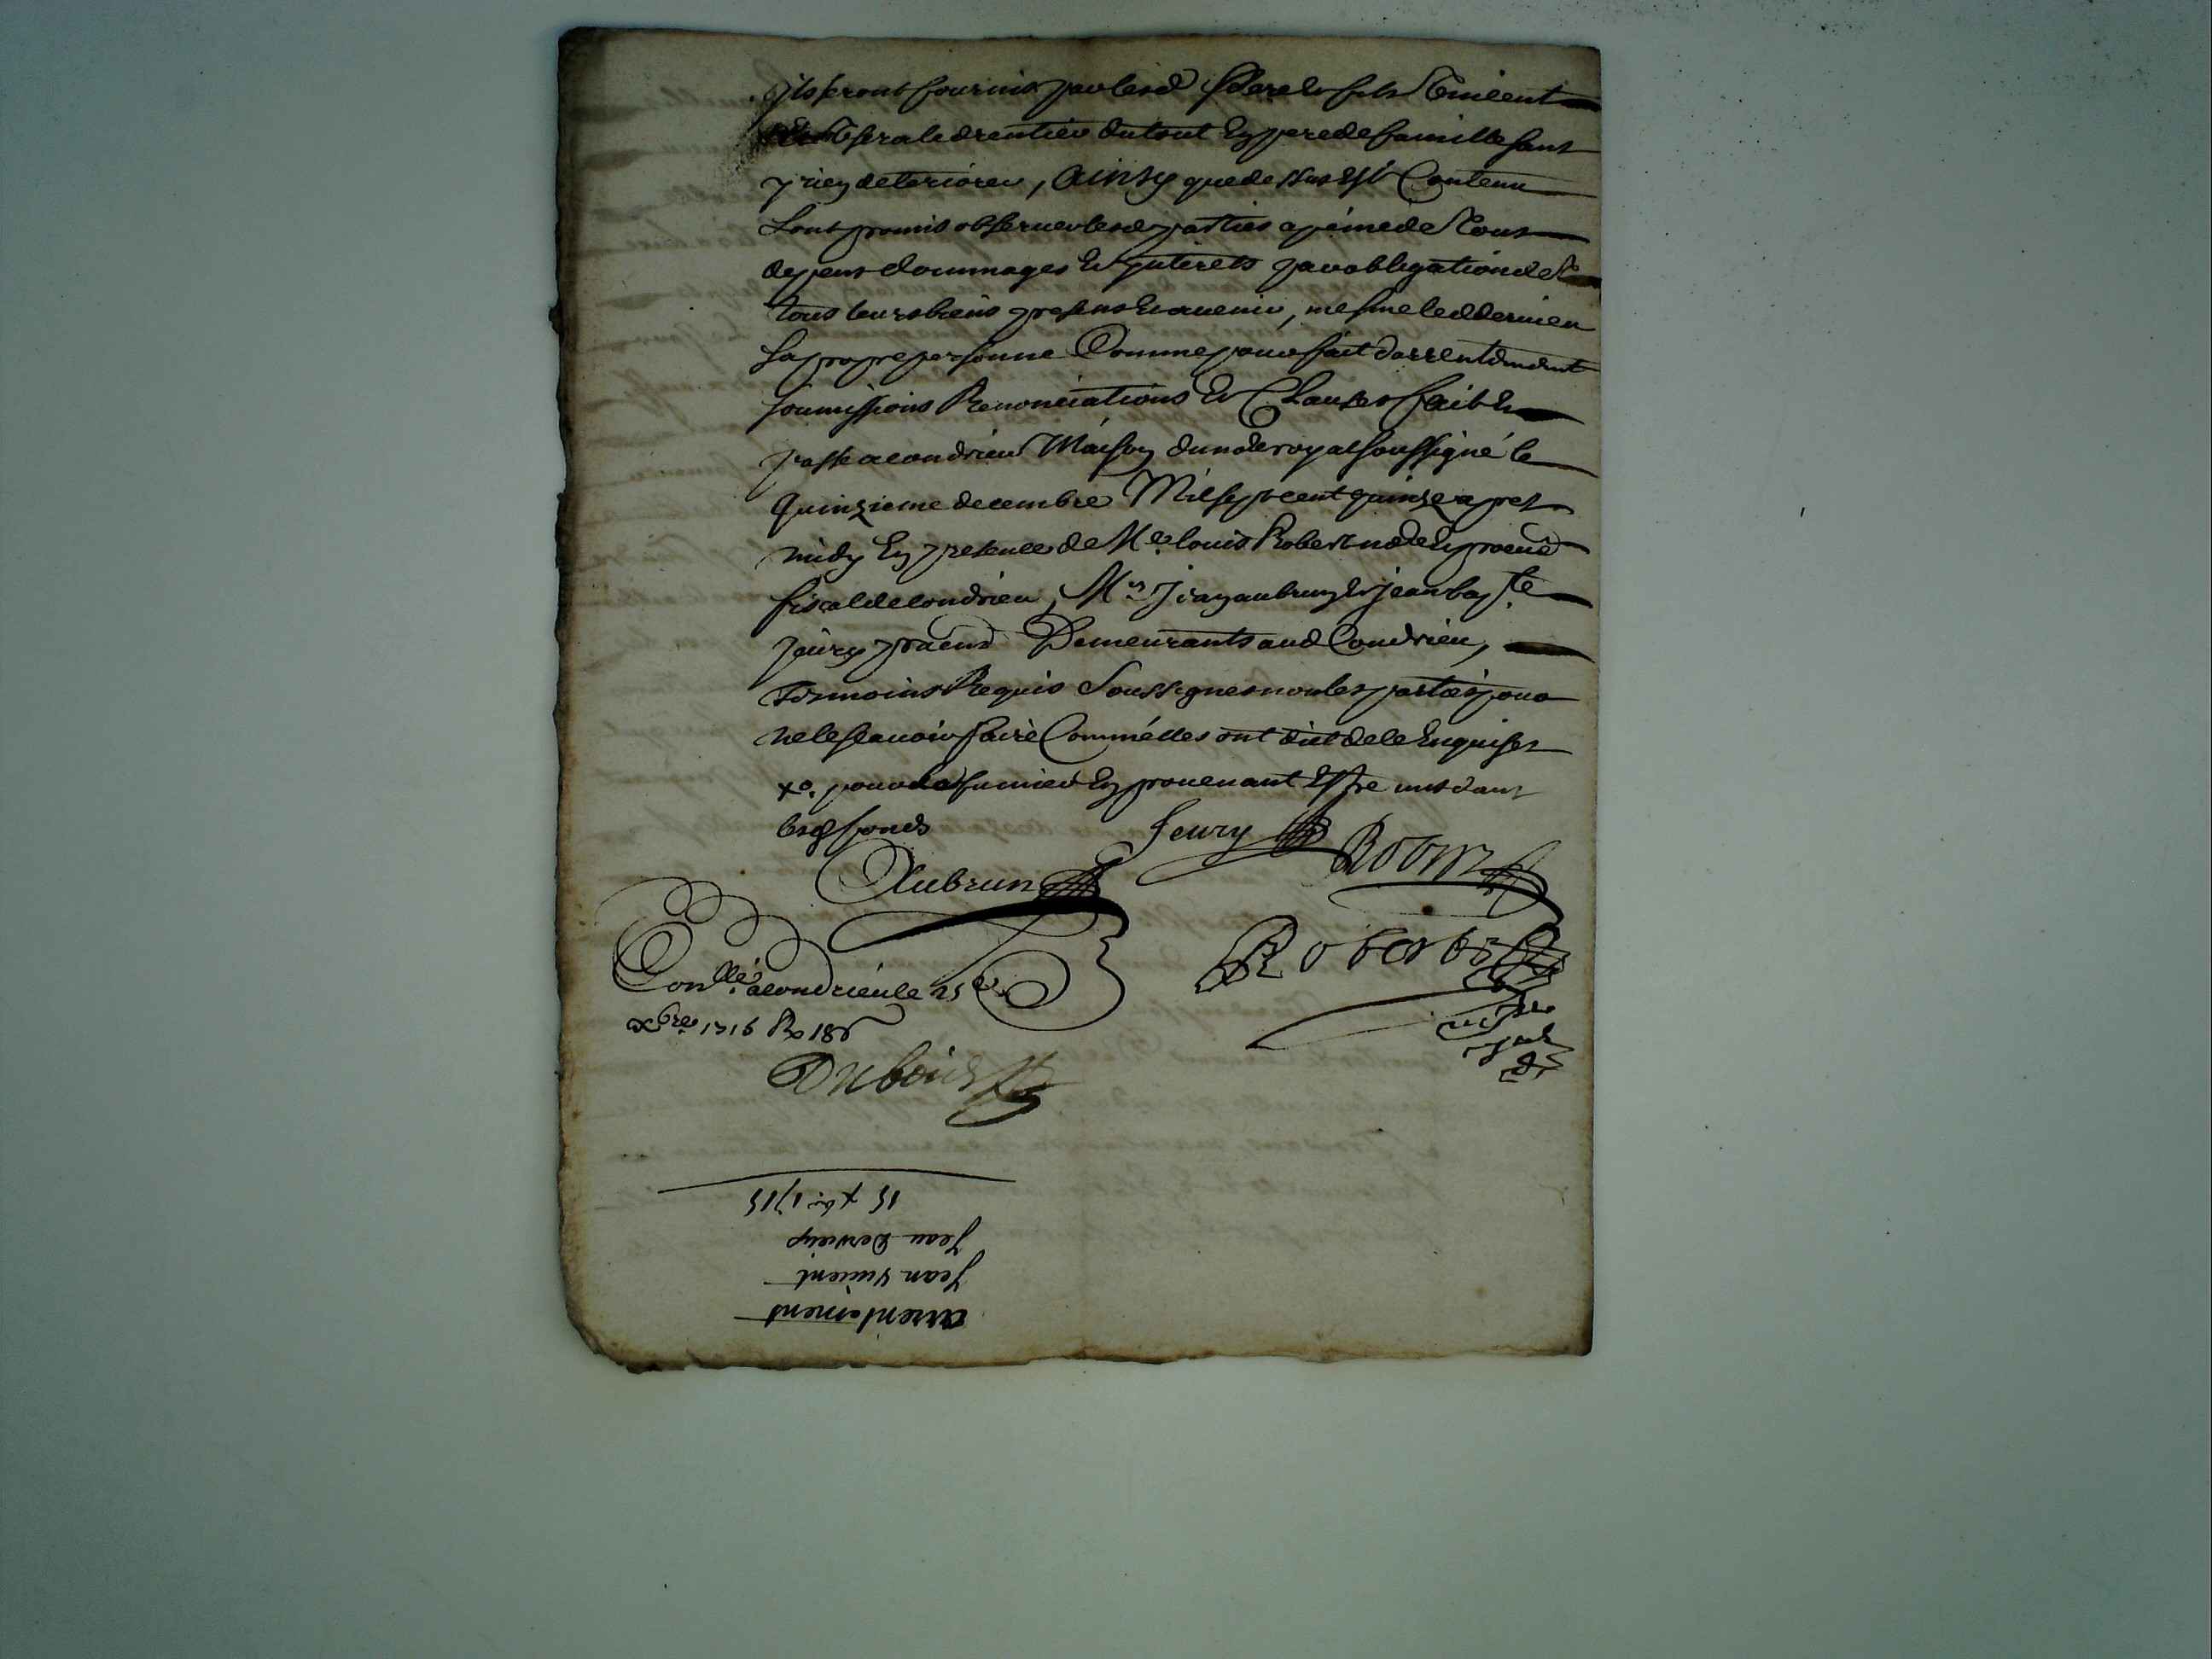 ils seront fournis par lesd pere et fils Vincent
usera led rentier du tout en pere de famille sans
y rien deteriorer, Ainsy que dessus est Contenu
L'ont promis observer lesd parties a peine de Tous
depens dommages et interets par obligation de
tous leurs biens presens et avenir, mesme led dernier
sa propre personne Comme pour fait darrentement
soumissions Renonciations et Clauses fait et
passe a condrieu Maison du note royal soussigné le
quinzieme decembre Mil sept cent quinze apres
midy En presence de Me. louis Robert note et procu
fiscal de condrieu, Mrs aubrun et jean bapte
jeury Demeurants aud Condrieu,
Temoins Requis Soussignes non les parties pour
ne le scavoir faire Comme elles ont dit de le Enquises
xo. pour le fumier En provenant Estre mis dans
lesd fonds
Jeury Robin
Aubrun
Robert
Conllé a condrieu le 25e
xbre 1715 R 18s
Dubois
arrentement
Jean Vincent
Jean Dervieux
15 xbr 1715